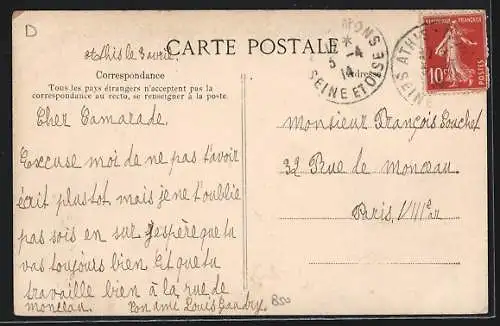 D
Athis le 3 avril
CARTE POSTALE
Correspondance
Tous les pays étrangers n'acceptent pas la
correspondance au recto, se renseigner à la poste.
Cher Camarade.
Excuse moi de ne pas t'avoir
écrit plus tot mais je ne t'oublie
pas sois en sur J'espère que tu
vas toujours bien Et que tu
travaille bien à la rue de
monceau. Ton ami Louis
B50
MONS
5 - 4
14
SEINE ET OISE
Adresse
ATHIS
SEINE
REPUBLIQUE FRANÇAISE
10c
POSTES
Monsieur François Pouchet
32 Rue de Monceau
Paris. VIIIe